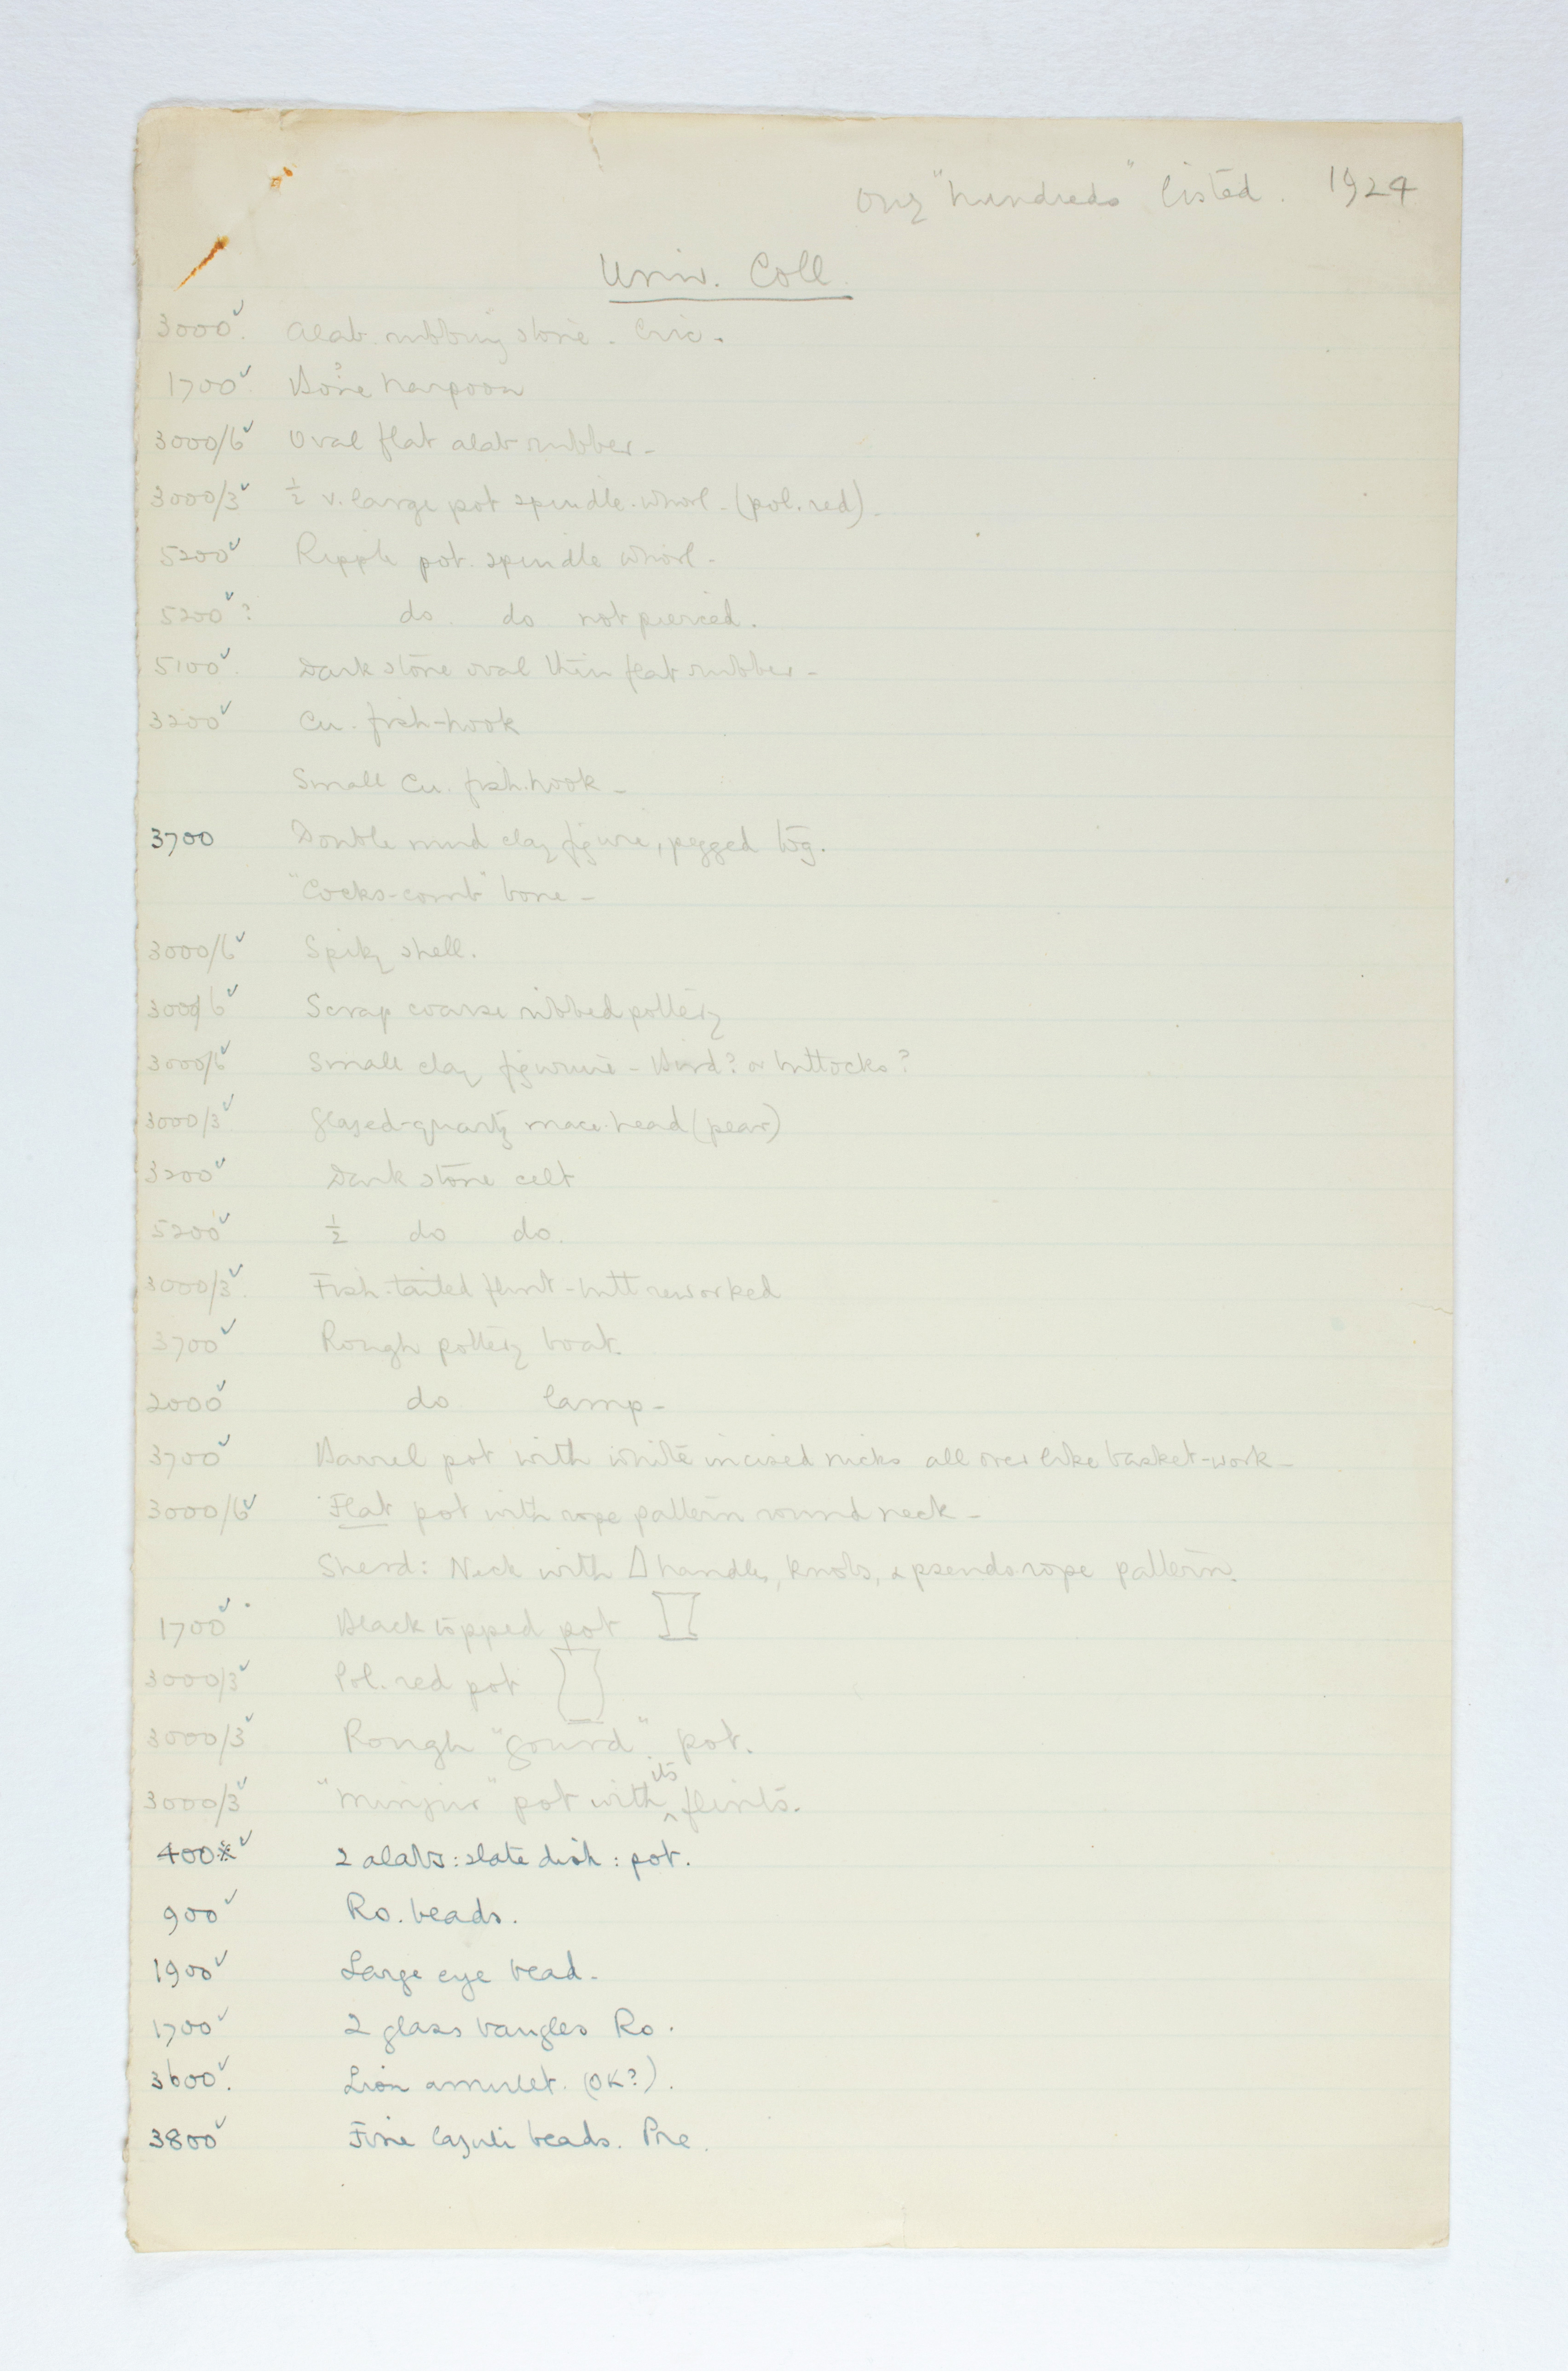 Only "hundreds" listed. 1924
Univ. Coll.
3000 ✓. Alab. rubbing stone. Circ.
1700 ✓. Bone harpoon
3000/6 ✓ Oval flat alab rubber -
3000/3 ✓ ½ v. large pot spindle-whorl - (pol. red) -
5200 ✓ Ripple pot. spindle whorl -
5200 ✓? do. do not pierced.
5100 ✓. Dark stone oval thin flat rubber -
3200 ✓ Cu. fish-hook
Small Cu. fish.hook -
3700 Double mud clay figure, pegged tog.
"Cocks-comb" bone -
3000/6 ✓ Spiky shell.
3000/6 ✓ Scrap coarse ribbed pottery
3000/6 ✓ Small clay figurine - Bird? or buttocks?
3000/3 ✓. Glazed-quartz mace-head (pear)
3200 ✓ Dark stone celt
5200 ✓ ½ do do.
3000/3 ✓. Fish-tailed flint - butt reworked
3700 ✓ Rough pottery boat.
2000 ✓ do lamp -
3700 ✓ Barrel pot with white incised nicks all over like basket-work -
3000/6 ✓ Flat pot with rope pattern round neck -
Sherd: Neck with Δ handles, knobs, & pseudo rope pattern.
1700 ✓ Black topped pot
3000/3 ✓ Pol. red pot
3000/3 ✓ Rough "gourd" pot.
3000/3 ✓ "Minjur" pot with its flints.
400※ ✓ 2 alabs: slate dish: pot.
900 ✓ Ro. beads.
1900 ✓ Large eye bead -
1700 ✓ 2 glass bangles Ro.
3600 ✓. Lion amulet. (OK?).
3800 ✓ Fine lazuli beads. Pre.